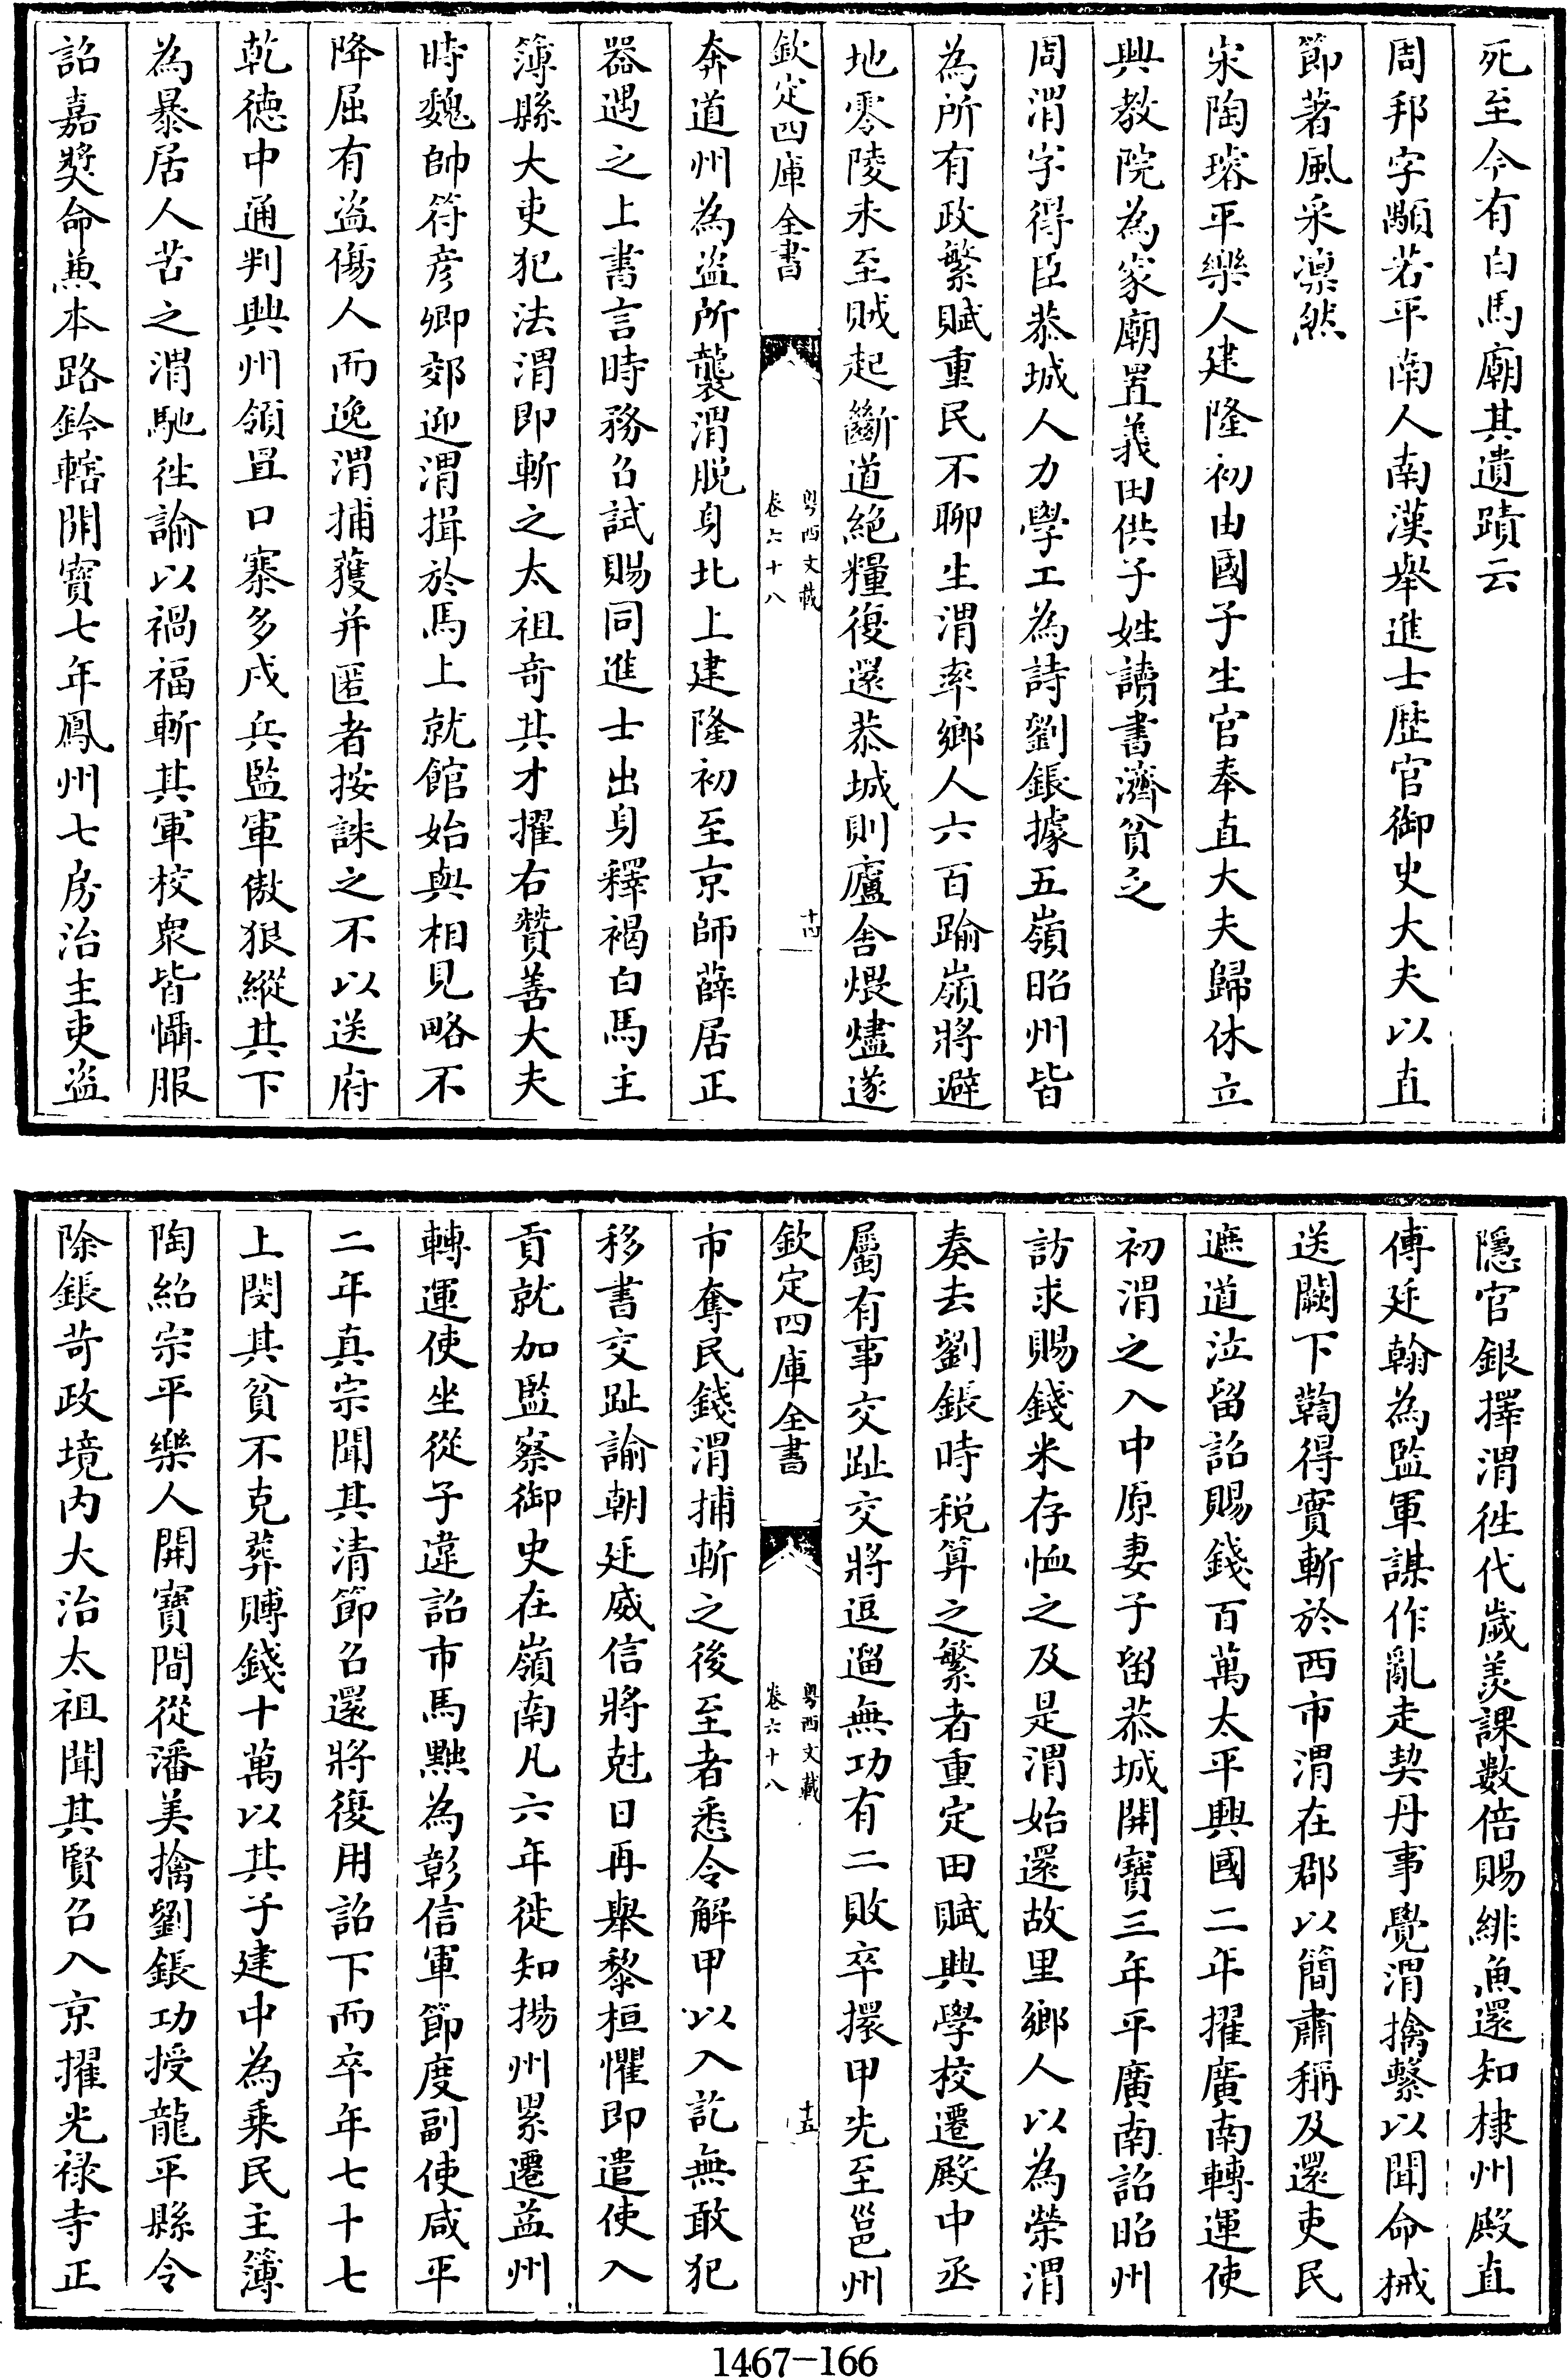 死至今有白馬廟其遺蹟云
周邦字顒若平南人南漢舉進士歴官御史大夫以直
節著風采凛然
宋陶璿平樂人建隆初由國子生官奉直大夫歸休立
興教院為家廟置義田供子姓讀書濟貧乏
周渭字得臣恭城人力學工為詩劉鋹據五嶺昭州皆
為所有政繁賦重民不聊生渭率鄉人六百踰嶺將避
地零陵未至賊起斷道絶糧復還恭城則廬舍煨燼遂
欽定四庫全書
粤西文載
卷六十八
十四
奔道州為盗所襲渭脱身北上建隆初至京師薛居正
器遇之上書言時務召試賜同進士出身釋褐白馬主
簿縣大吏犯法渭即斬之太祖奇其才擢右贊善大夫
時魏帥符彦卿郊迎渭揖於馬上就館始與相見略不
降屈有盗傷人而逸渭捕獲并匿者按誅之不以送府
乾徳中通判興州領罝口寨多戍兵監軍傲狠縱其下
為暴居人苦之渭馳往諭以禍福斬其軍校衆皆懾服
詔嘉奬命兼本路鈐轄開寳七年鳳州七房治主吏盗
隱官銀擇渭徃代歲羡課數倍賜緋魚還知棣州殿直
傅延翰為監軍謀作亂走契丹事覺渭擒繫以聞命械
送闕下鞫得實斬於西市渭在郡以簡肅稱及還吏民
遮道泣留詔賜錢百萬太平興國二年擢廣南轉運使
初渭之入中原妻子留恭城開寳三年平廣南詔昭州
訪求賜錢米存恤之及是渭始還故里鄉人以為榮渭
奏去劉鋹時税算之繁者重定田賦興學校遷殿中丞
屬有事交趾交將逗遛無功有二敗卒擐甲先至邕州
欽定四庫全書
粤西文載
卷六十八
十五
市奪民錢渭捕斬之後至者悉令解甲以入訖無敢犯
移書交趾諭朝廷威信將尅日再舉黎桓懼即遣使入
貢就加監察御史在嶺南凡六年徙知揚州累遷益州
轉運使坐從子違詔市馬黜為彰信軍節度副使咸平
二年真宗聞其清節召還將復用詔下而卒年七十七
上閔其貧不克葬賻錢十萬以其子建中為乗民主簿
陶紹宗平樂人開寳間從潘美擒劉鋹功授龍平縣令
除鋹苛政境内大治太祖聞其賢召入京擢光禄寺正
1467-166